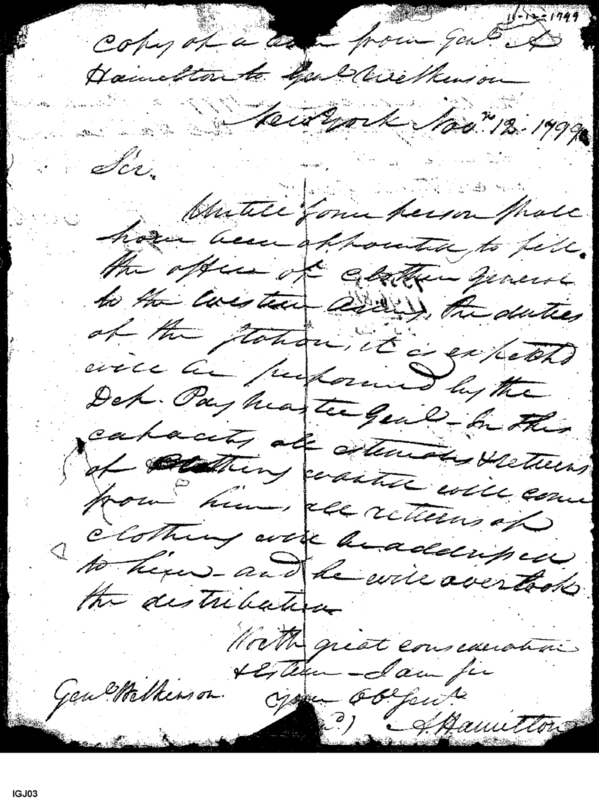 11-12-1799
Copy of a from Genl A
Hamelton to Genl Wilkinson
New York Nov. 12. 1799
Sir.
Untill some person shall
have been appointed to fill
the office of clothier General
to the Western Army, the duties
of the station, it is expected
will be performed by the
Dep. Pay Master Genl - In this
capacity all estimates & returns
of Clothing wanted will come
from him, all returns of
clothing will be addressed
to him - and he will overlook
the distribution
With great consideration
& esteem - I am Sir
Genl Wilkinson. Your Obt Servt
A. Hamilton
IGJ03